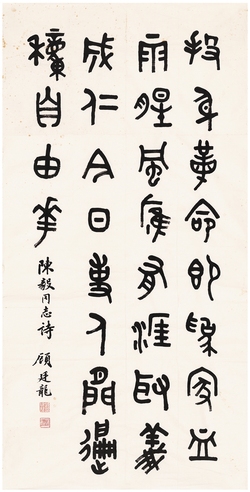 投身革命即為家血
雨腥風應有涯取義
成仁今日事人間遍
穜自由華 陳毅同志詩 顧廷龍